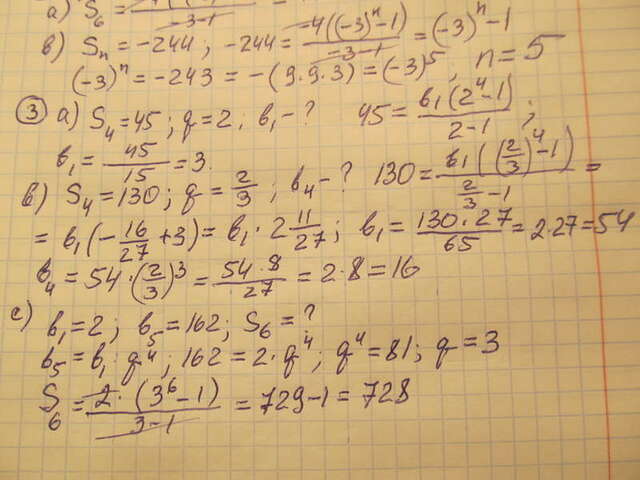 a) S₆ = / 3-1
в) Sₙ = -244; -244 = -4((-3)ⁿ-1) / -3-1 = (-3)ⁿ-1
(-3)ⁿ = -243 = -(9·9·3) = (-3)⁵; n = 5
③ a) S₄ = 45; q = 2; в₁ - ? 45 = в₁(2⁴-1) / 2-1;
в₁ = 45/15 = 3.
в) S₄ = 130; q = 2/3; в₄ - ? 130 = в₁((2/3)⁴-1) / 2/3 - 1 =
= в₁(-16/27 + 3) = в₁·2 11/27; в₁ = 130·27/65 = 2·27 = 54
в₄ = 54·(2/3)³ = 54·8/27 = 2·8 = 16
c) в₁ = 2; в₅ = 162; S₆ = ?
в₅ = в₁ q⁴; 162 = 2·q⁴; q⁴ = 81; q = 3
S₆ = 2·(3⁶-1) / 3-1 = 729-1 = 728